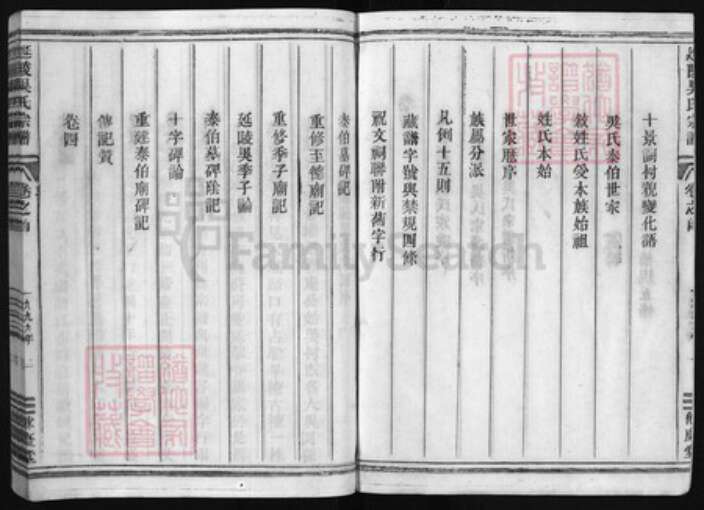 十景詞村獻變化語
吳氏泰伯世家
敘姓氏受太族始祖
姓氏本始
世家歷序
族屬分派
凡例十五則
藏譜字號與禁規四條
祝文祠聯附新舊字行
泰伯墓碑記
重修至德廟記
重修季子廟記
延陵吳季子論
泰伯墓碑陰記
十字碑論
重建泰伯廟碑記
傳記賛
卷四
延陵吳氏宗譜
一九九六年
FamilySearch